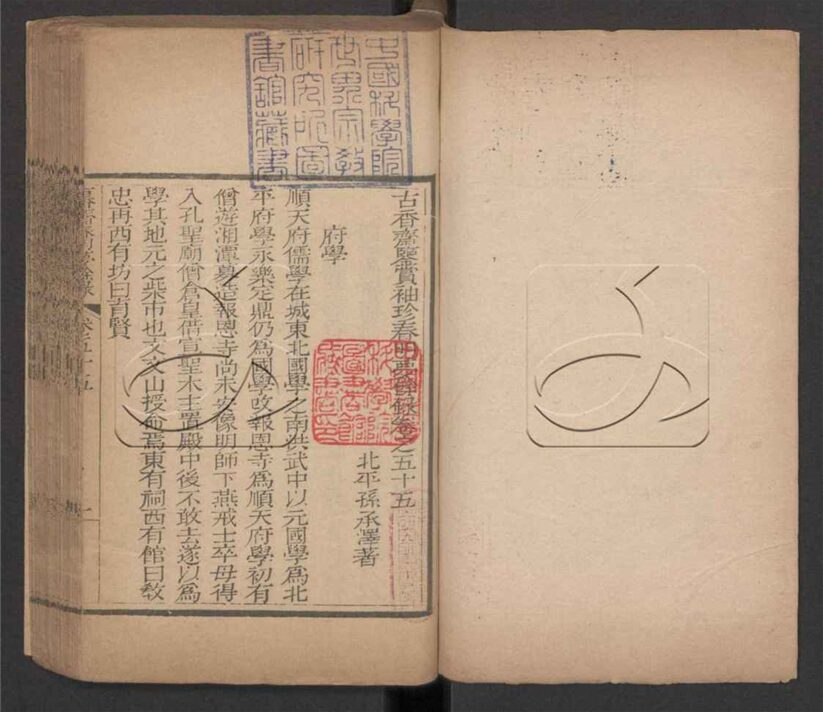 中國科學院
世界宗教
研究所圖
書館藏書
古香齋鑒賞袖珍春明夢餘錄卷之五十五
北平孫承澤著
府學
順天府儒學在城東北國學之南洪武中以元國學爲北
平府學永樂定鼎仍爲國學改報恩寺爲順天府學初有
僧遊湘潭募造報恩寺尚未安像明師下燕戒士卒毋得
入孔聖廟僧倉皇借宣聖木主置殿中後不敢去遂以爲
學其地元之柴市也文文山授命焉東有祠西有館曰敎
忠再西有坊曰育賢
卷五十五
一